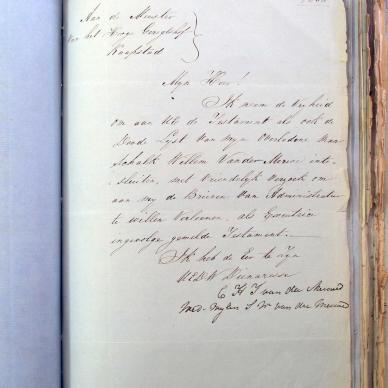 Aan de Meester
van het Hooge Geregtshof
Kaapstad
Myn Heer!
Ik neem de vryheid
om aan UEd de Testament als ook de
Doode Lyst van myn Overledene man
Schalk Willem Van der Merwe in te
sluiten, met vriendelyk verzoek om
aan my de Brieven van Administratie
te willen verleenen, als Executrice
ingevolge gemelde Testament.
Ik heb de Eer te zyn
UEd W Dienaresse
C H J van der Merwe
Wed. wylen S W van der Merwe